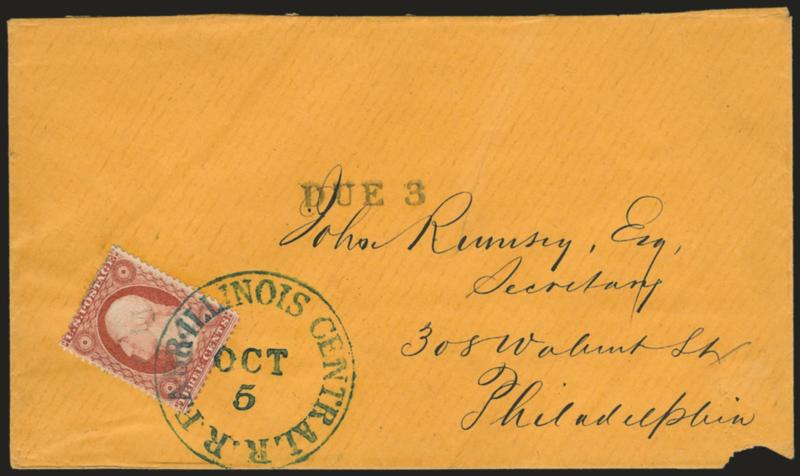 DUE 3
John Rumsey, Esq,
Secretary
308 Walnut St
Philadelphia
U.S. POSTAGE
THREE CENTS
ILLINOIS CENTRAL R.R.
OCT
5